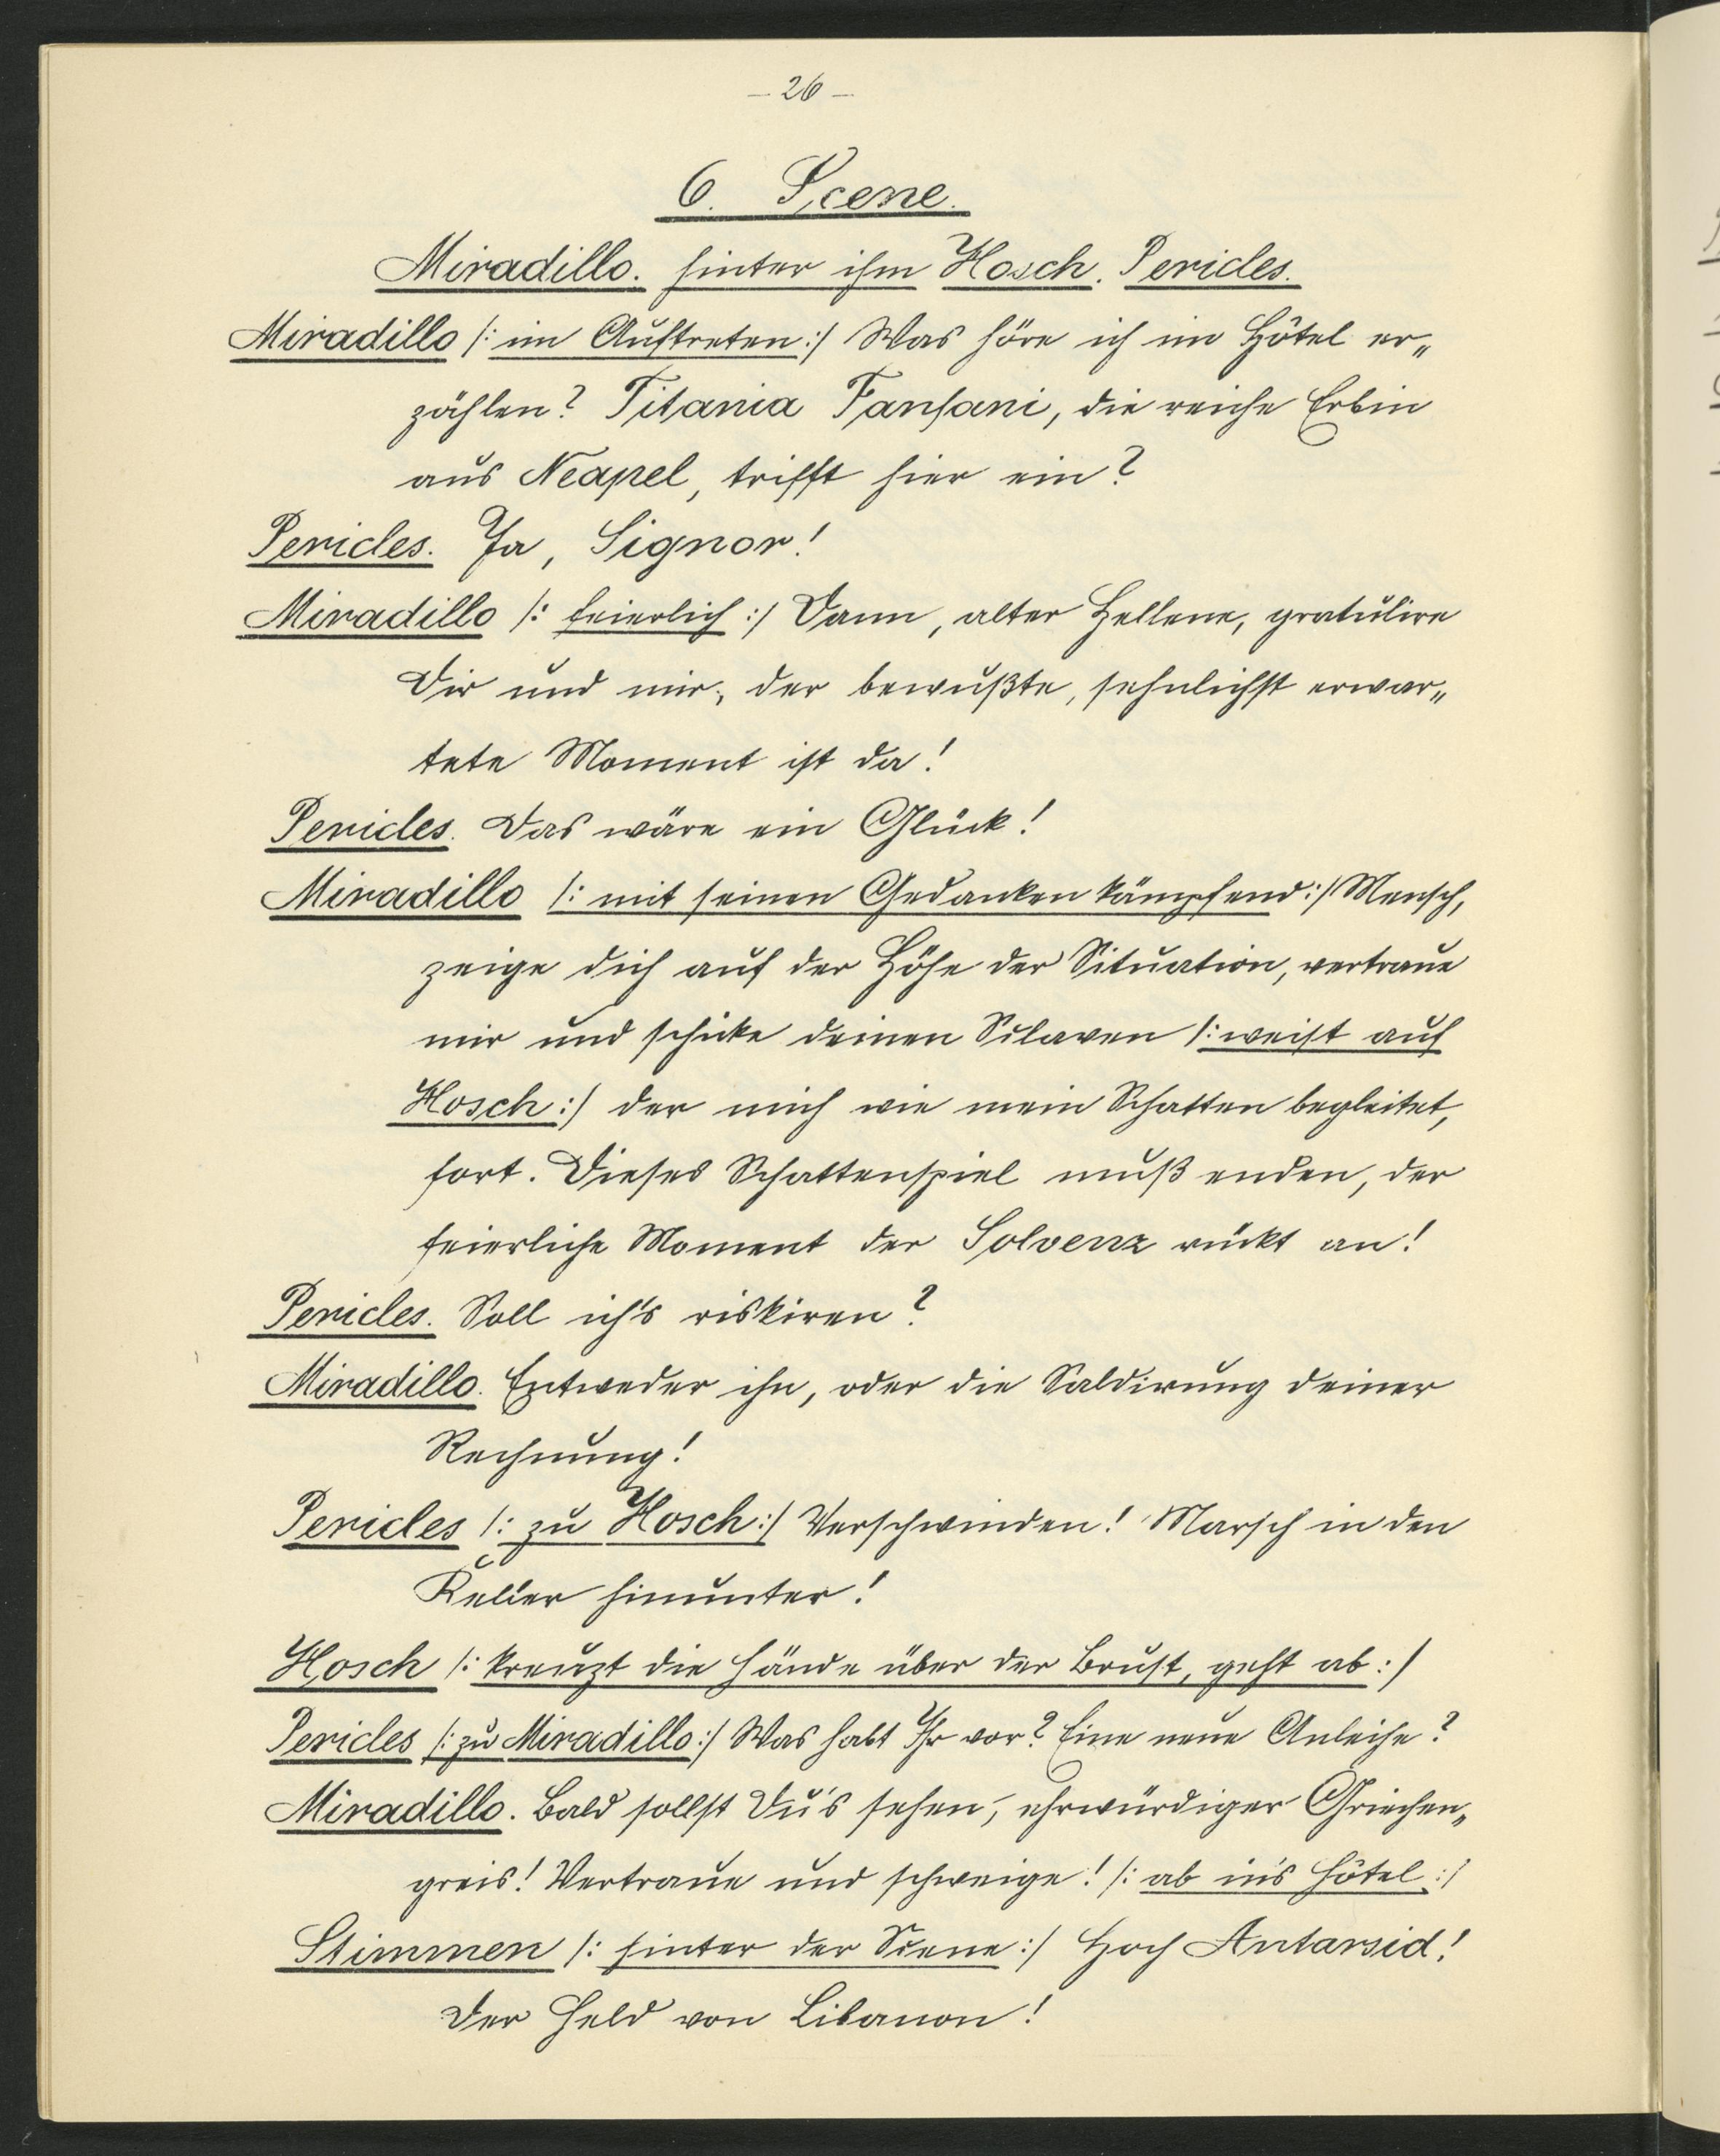 – 26 –
6. Scene.
Miradillo. hinter ihm Hosch. Pericles.
Miradillo /: im Auftreten :/ Was höre ich im Hôtel er„
zählen? Titania Fanfani, die reiche Erbin
aus Neapel, trifft hier ein?
Pericles. Ja, Signor!
Miradillo /: feierlich :/ Dann, alter Hellene, gratulire
Dir und mir; der bewußte, sehnlichst erwar„
tete Moment ist da!
Pericles. Das wäre ein Glück!
Miradillo /: mit seinen Gedanken kämpfend :/ Mensch,
zeige dich auf der Höhe der Situation, vertraue
mir und schicke deinen Sclaven /: weist auf
Hosch :/ der mich wie mein Schatten begleitet,
fort. Dieses Schattenspiel muß enden, der
feierliche Moment der Solvenz rückt an!
Pericles. Soll ich's riskiren?
Miradillo. Entweder ihn, oder die Saldirung deiner
Rechnung!
Pericles /: zu Hosch :/ Verschwinden! Marsch in den
Keller hinunter!
Hosch /: kreuzt die Hände über der Brust, geht ab :/
Pericles /: zu Miradillo :/ Was habt Ihr vor? Eine neue Anleihe?
Miradillo. Bald sollst Du's sehen, ehrwürdiger Griechen„
greis! Vertraue und schweige! /: ab in's Hôtel :/
Stimmen /: hinter der Scene :/ Hoch Antarsid!
Der Held von Libanon!